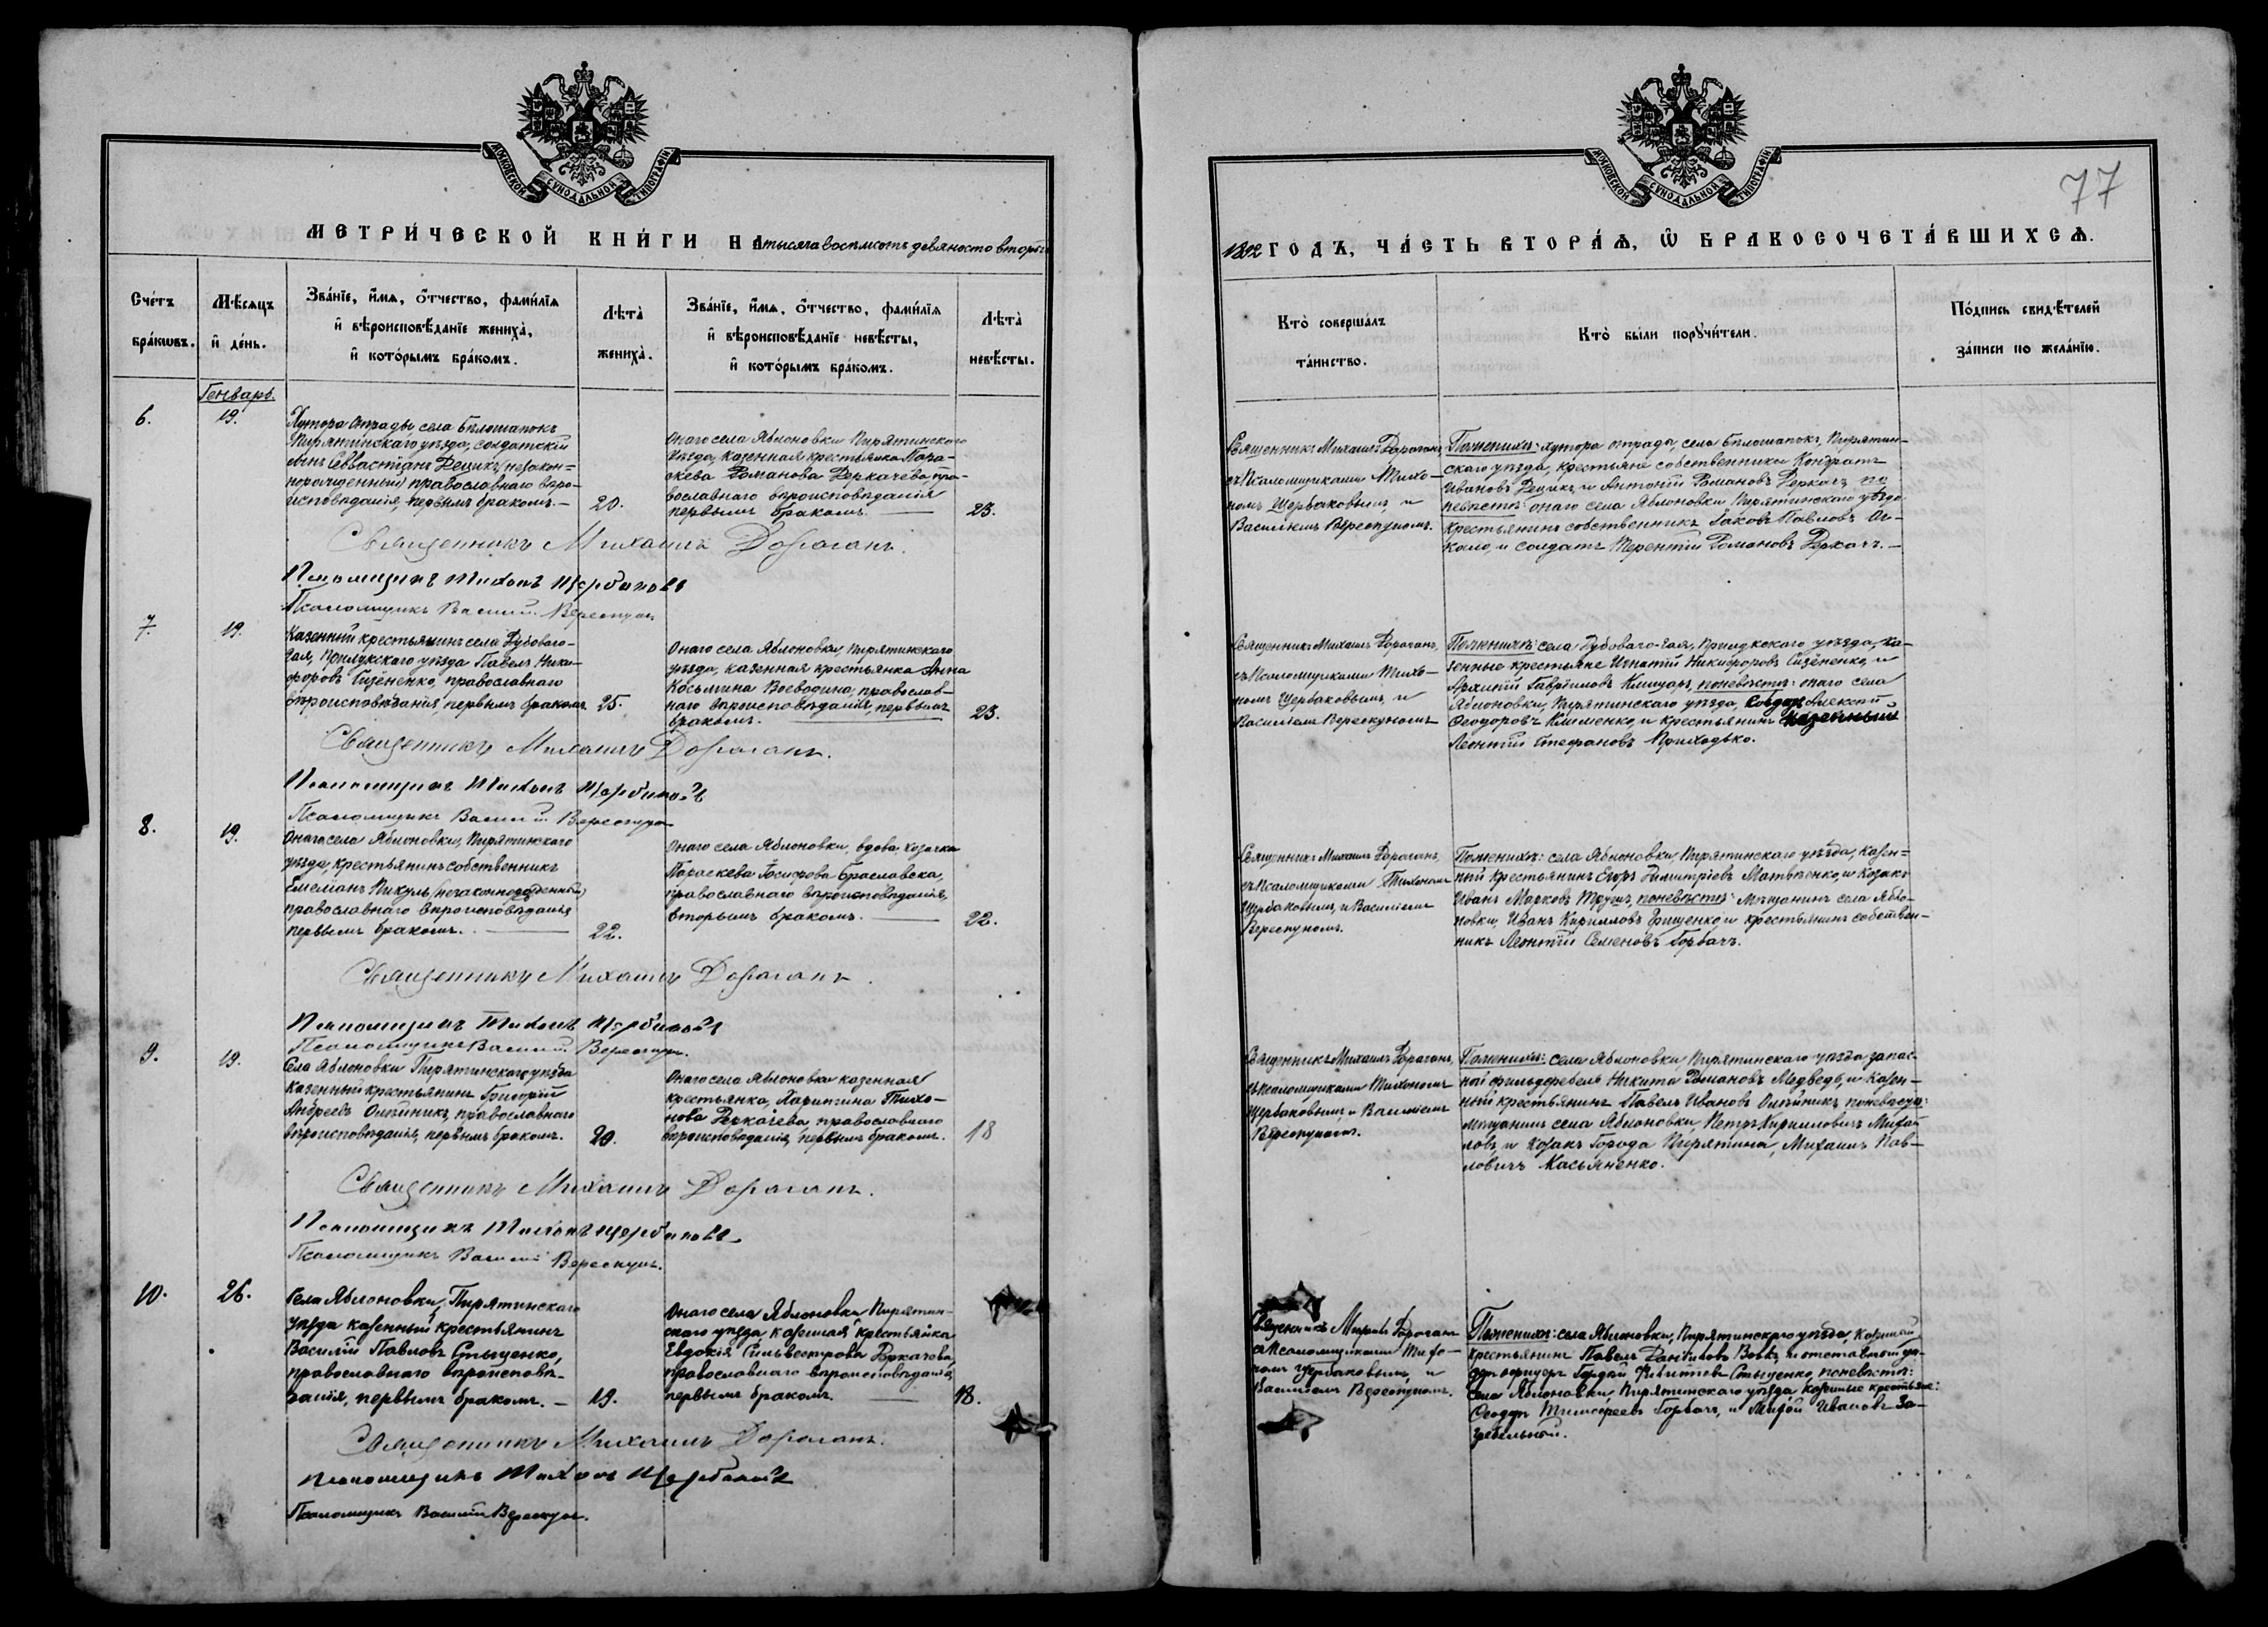 МОСКОВСКОЙ СѴНОДАЛЬНОЙ ТИПОГРАФІИ
МЕТРИ́ЧЕСКОЙ КНИ́ГИ НА тысяча восемьсотъ девяносто второй
Сче́тъ бра́кωвъ.
Мѣ́сяцъ и҆ де́нь.
Зва́нїе, и҆́мѧ, ѻ҆́тчество, фами́лїѧ
и҆ вѣроисповѣ́данїе жениха̀,
и҆ кото́рымъ бра́комъ.
Лѣ́та̀ жениха̀.
Зва́нїе, и҆́мѧ, ѻ҆́тчество, фами́лїѧ
и҆ вѣроисповѣ́данїе невѣ́сты,
и҆ кото́рымъ бра́комъ.
Лѣ́та̀ невѣ́сты.
Генварь.
6.
19.
Хутора Отрады села Бѣлошапокъ
Пирятинскаго уѣзда, солдатскій
сынъ Севвастіанъ Децикъ (незакон=
норожденный) православнаго вѣро-
исповѣданія, первымъ бракомъ.—
20.
Онаго села Яблоновки Пирятинскаго
уѣзда, казенная крестьянка Пара-
скева Романова Деркачева пра-
вославнаго вѣроисповѣданія
первымъ бракомъ.
23.
Священникъ Михаилъ Дораганъ.
Псаломщикъ Тихонъ Щербаковъ
Псаломщикъ Василій Верескунъ
7.
19.
Казенный крестьянинъ села Дубоваго-
Гая, Прилукскаго уѣзда Павелъ Ники-
форовъ Сизененко, православнаго
вѣроисповѣданія, первымъ бракомъ
25.
Онаго села Яблоновки, Пирятинскаго
уѣзда, казенная крестьянка Анна
Косьмина Воеводина, православ-
наго вѣроисповѣданія, первымъ
бракомъ.
23.
Священникъ Михаилъ Дораганъ.
Псаломщикъ Тихонъ Щербаковъ
Псаломщикъ Василій Верескунъ
8.
19.
Онаго села Яблоновки, Пирятинскаго
уѣзда, крестьянинъ собственникъ
Емеліанъ Пикуль (незаконнорожденный)
православнаго вѣроисповѣданія
первымъ бракомъ.
22.
Онаго села Яблоновки, вдова козачка
Параскева Іосифова Браславска,
православнаго вѣроисповѣданія,
вторымъ бракомъ.
22.
Священникъ Михаилъ Дораганъ.
Псаломщикъ Тихонъ Щербаковъ
Псаломщикъ Василій Верескунъ.
9.
19.
Села Яблоновки Пирятинскаго уѣзда
казенный крестьянинъ Григорій
Андреевъ Олейникъ, православнаго
вѣроисповѣданія, первымъ бракомъ.
20.
Онаго села Яблоновки казенная
крестьянка, Харитина Тихо-
нова Деркачева, православнаго
вѣроисповѣданія, первымъ бракомъ.
18
Священникъ Михаилъ Дораганъ.
Псаломщикъ Тихонъ Щербаковъ.
Псаломщикъ Василій Верескунъ.
10.
26.
Села Яблоновки, Пирятинскаго
уѣзда казенный крестьянинъ
Василій Павловъ Стыценко,
православнаго вѣроисповѣ-
данія, первымъ бракомъ.—
19.
Онаго села Яблоновки Пирятин-
скаго уѣзда, казенная крестьянка
Евдокія Сильвестрова Деркачева,
православнаго вѣроисповѣданія
первымъ бракомъ.
18.
Священникъ Михаилъ Дораганъ.
Псаломщикъ Тихонъ Щербаковъ
Псаломщикъ Василій Верескунъ.
МОСКОВСКОЙ СѴНОДАЛЬНОЙ ТИПОГРАФІИ
77
1892 ГОДЪ, ЧА́СТЬ ВТОРА́Ѧ, Ѽ БРАКОСОЧЕТА́ВШИХСѦ.
Кто̀ соверша́лъ та́инство.
Кто̀ бы́ли порꙋчи́тели.
По́дпись свидѣ́телей за́писи по жела́нїю.
Священникъ Михаилъ Дораганъ,
съ Псаломщиками Тихо-
номъ Щербаковымъ, и
Василіемъ Верескуномъ.
По женихѣ: хутора отрады, села Бѣлошапокъ, Пирятин-
скаго уѣзда, крестьяне собственники Кондратъ
Ивановъ Децикъ, и Антоній Романовъ Деркачъ, по
невѣстѣ: онаго села Яблоновки Пирятинскаго уѣзда
крестьянинъ собственникъ Іаковъ Павловъ Оч-
кало, и солдатъ Терентій Романовъ Деркачъ.—
Священникъ Михаилъ Дораганъ,
съ Псаломщиками Тихо-
номъ Щербаковымъ, и
Василіемъ Верескуномъ
По женихѣ: села Дубоваго-Гая, Прилукскаго уѣзда, ка-
зенные крестьяне Игнатій Никифоровъ Сизененко, и
Архипій Гавріиловъ Клишаръ, по невѣстѣ: онаго села
Яблоновки, Пирятинскаго уѣзда, Алексѣй
Ѳеодоровъ Клименко, и крестьянинъ казенный
Леонтій Стефановъ Приходько.
Священникъ Михаилъ Дораганъ,
съ Псаломщиками Тихономъ
Щербаковымъ, и Василіемъ
Верескуномъ.
По женихѣ: села Яблоновки, Пирятинскаго уѣзда, казен=
ный крестьянинъ Егоръ Димитріевъ Матвѣенко, и козакъ
Иванъ Марковъ Трушъ, по невѣстѣ: мѣщанинъ села Ябло-
новки, Иванъ Кирилловъ Грищенко, и крестьянинъ собствен-
никъ Леонтій Семеновъ Горбачъ.
Священникъ Михаилъ Дораганъ,
съ псаломщиками Тихономъ
Щербаковымъ и Василіемъ
Верескуномъ.
По женихѣ: села Яблоновки, Пирятинскаго уѣзда запас-
ной фильдфебель Никита Романовъ Медведь, и казен-
ный крестьянинъ Павелъ Ивановъ Олейникъ, по невѣстѣ:
мѣщанинъ села Яблоновки, Петръ Кирилловичъ Михай
ловъ, и козакъ города Пирятина, Михаилъ Пав-
ловичъ Касьяненко.
Священникъ Михаилъ Дораганъ
съ Псаломщиками Тихо-
номъ Щербаковымъ, и
Василіемъ Верескуномъ.
По женихѣ: села Яблоновки, Пирятинскаго уѣзда, казенный
крестьянинъ Павелъ Даніиловъ Вовкъ, и отставной ун-
деръ офицеръ Гордій Стыценко, по невѣстѣ:
села Яблоновки, Пирятинскаго уѣзда казенные крестьяне:
Ѳеодоръ Тимоѳеевъ Горбачъ, и Ивановъ За-
гребельный.